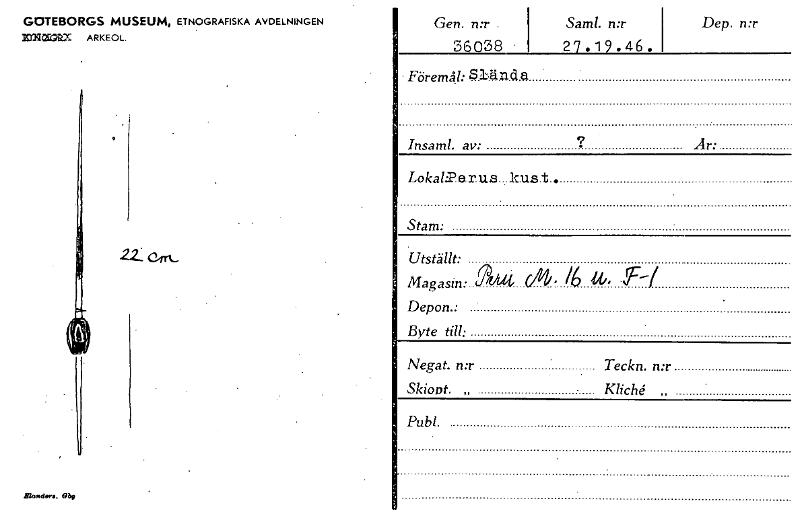 GÖTEBORGS MUSEUM, ETNOGRAFISKA AVDELNINGEN
ARKEOL.
22 cm
Elanders, Gbg
Gen. n:r Saml. n:r Dep. n:r
36038 27.19.46.
Föremål: Slända
Insaml. av: ? År:
Lokal: Perus kust.
Stam:
Utställt:
Magasin: Peru M. 16 u. F-1
Depon.:
Byte till:
Negat. n:r Teckn. n:r
Skiopt. „ Kliché „
Publ.